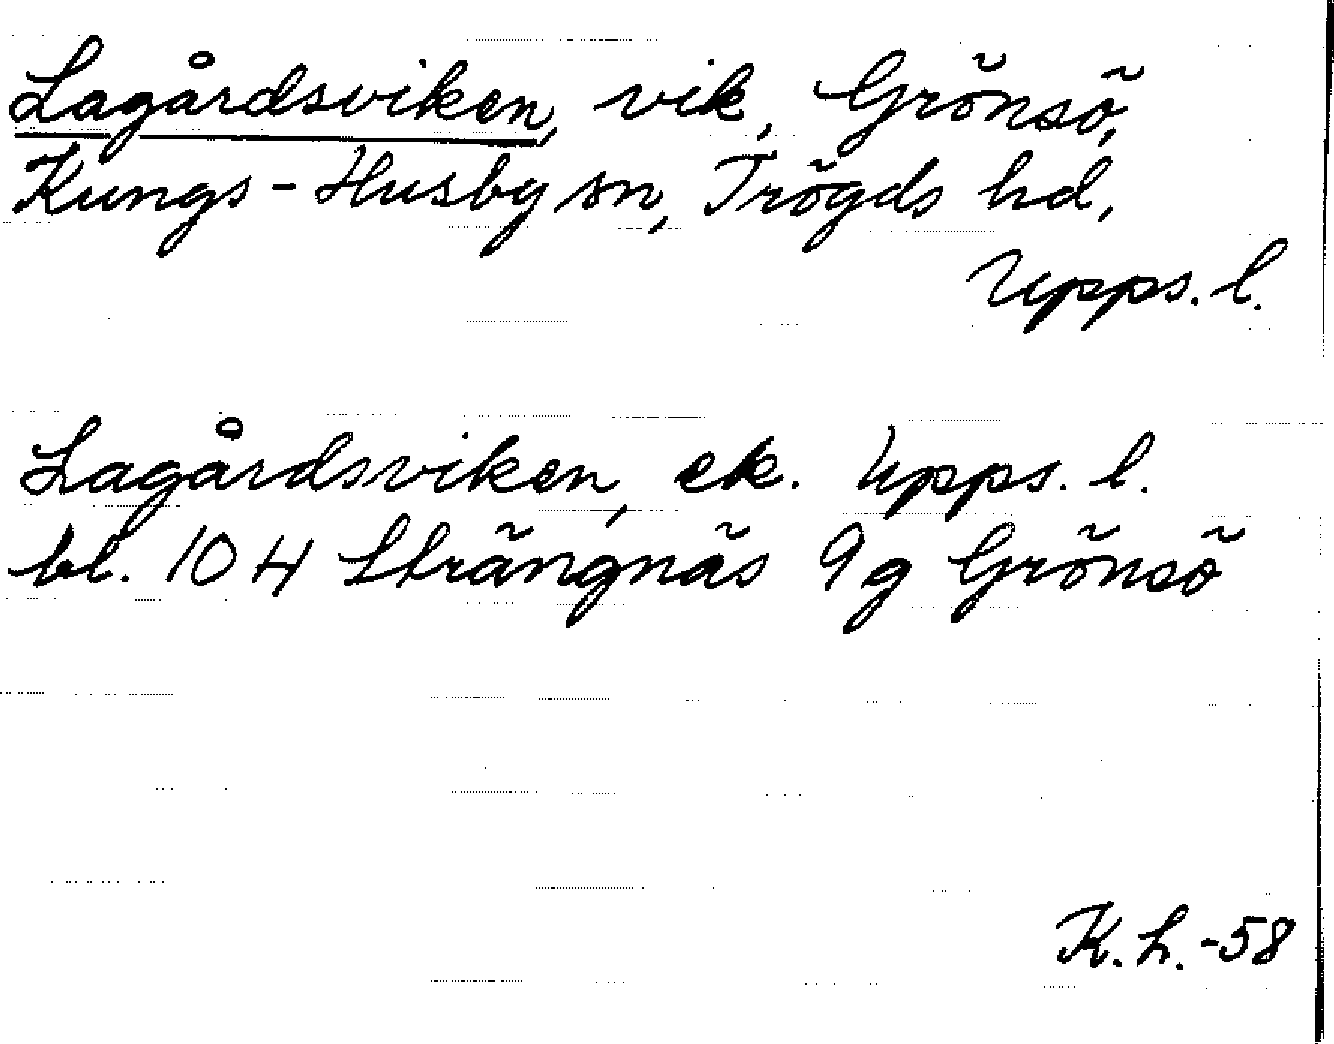 Lagårdsviken, vik, Grönsö,
Kungs-Husby sn, Trögds hd,
Upps. l.
Lagårdsviken, ek. Upps. l.
bl. 104 Strängnäs 9g Grönsö
K.L.-58